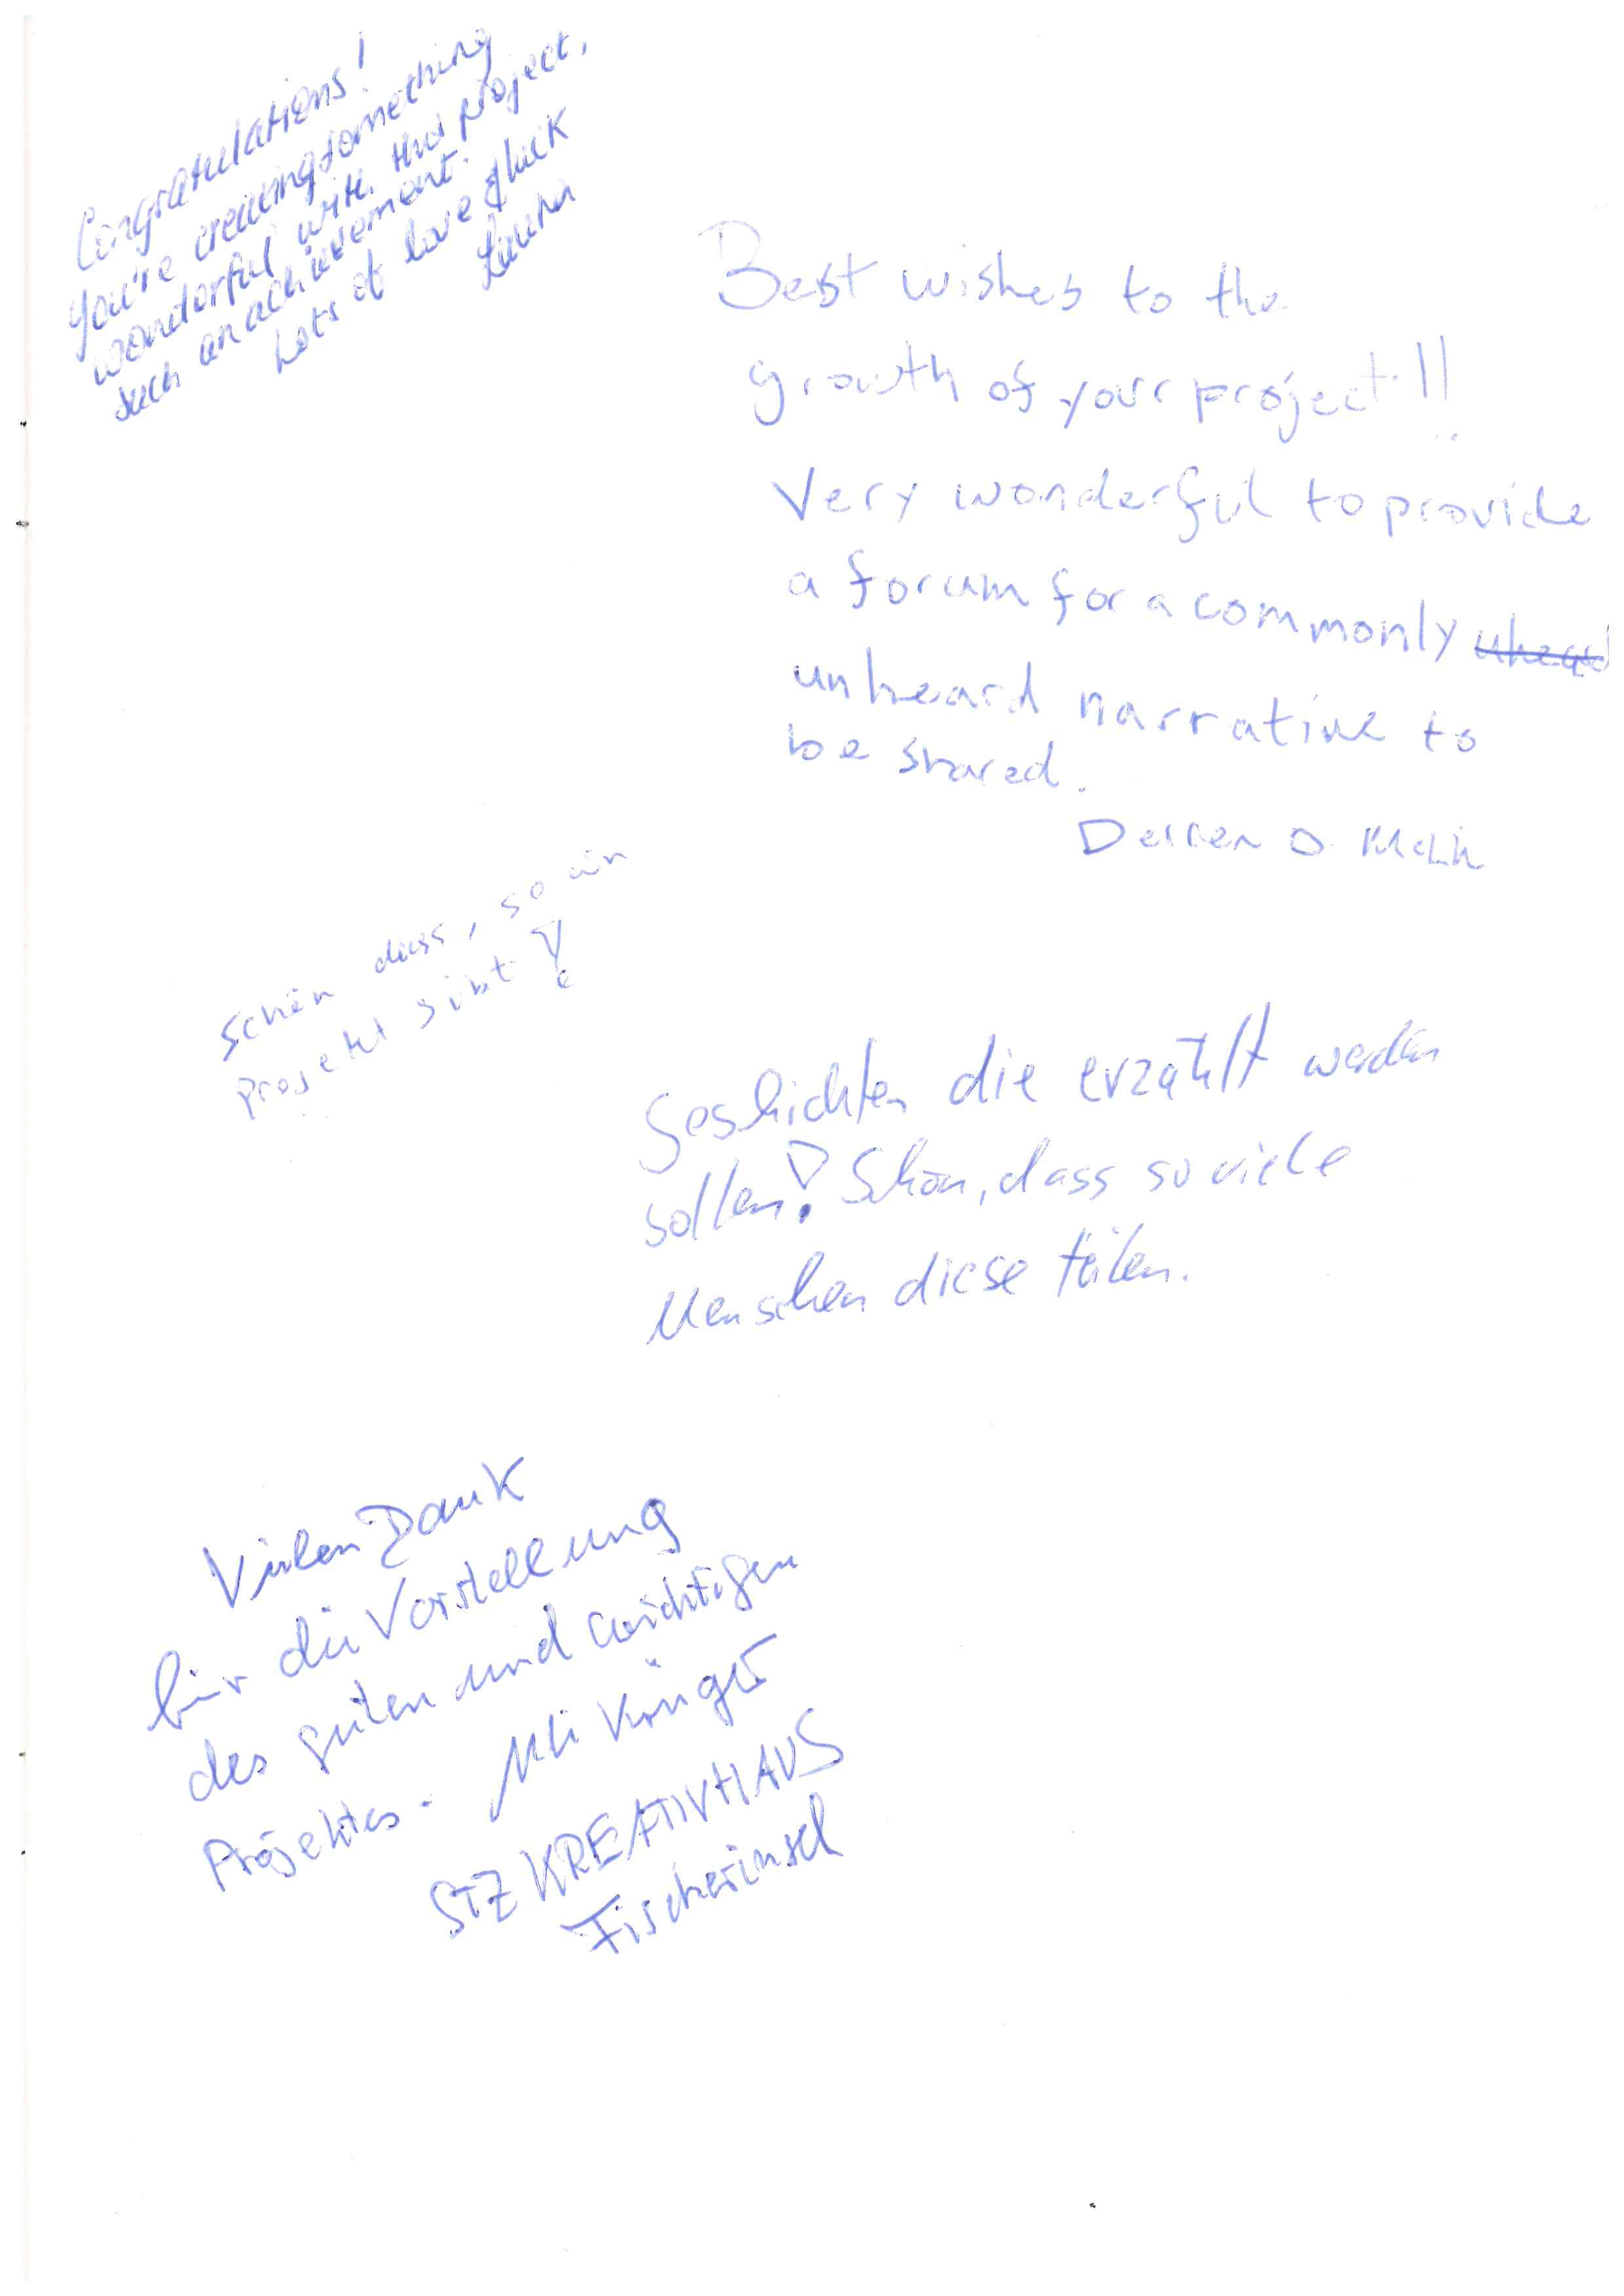 Congratulations!
You're creating something
wonderful with this project,
such an achievement.
Lots of love & luck
Laura
Best wishes to the
growth of your project!!
Very wonderful to provide
a forum for a commonly
unheard narrative to
be shared.
O.
Schön dass, so ein
Projekt gibt!
Geschichten die erzählt werden
sollen! Schön, dass so viele
Menschen diese teilen.
Vielen Dank
für die Vorstellung
des guten und wichtigen
Projektes.
STZ KREATIVHAUS
Fischerinsel